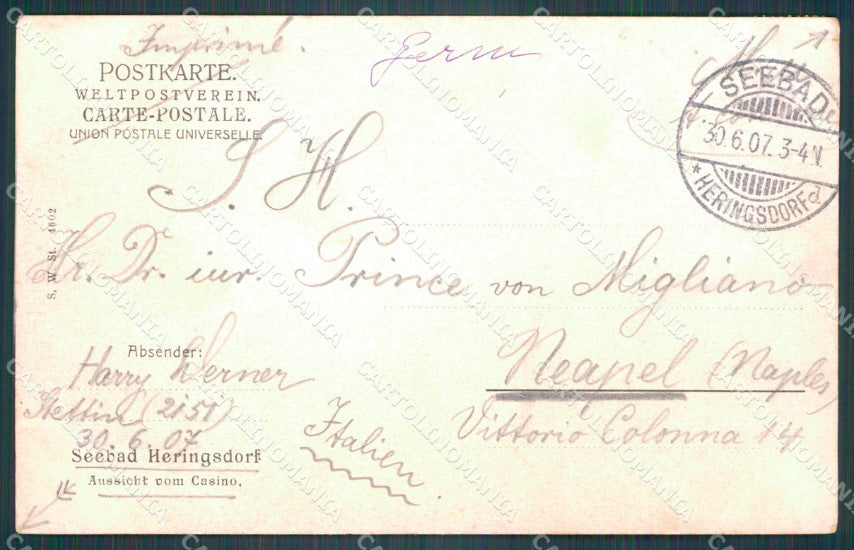 Imprimé.
Germ
POSTKARTE.
WELTPOSTVEREIN.
CARTE-POSTALE.
UNION POSTALE UNIVERSELLE.
SEEBAD
30.6.07. 3-4 N.
* HERINGSDORF d
S. H.
Hr. Dr. iur. Prince von Migliano
S. W. St. 1602
Neapel (Naples)
Vittorio Colonna 14
Italien.
Absender:
Harry Werner
Stettin (2151)
30. 6. 07
Seebad Heringsdorf
Aussicht vom Casino.
CARTOLINOMANIA